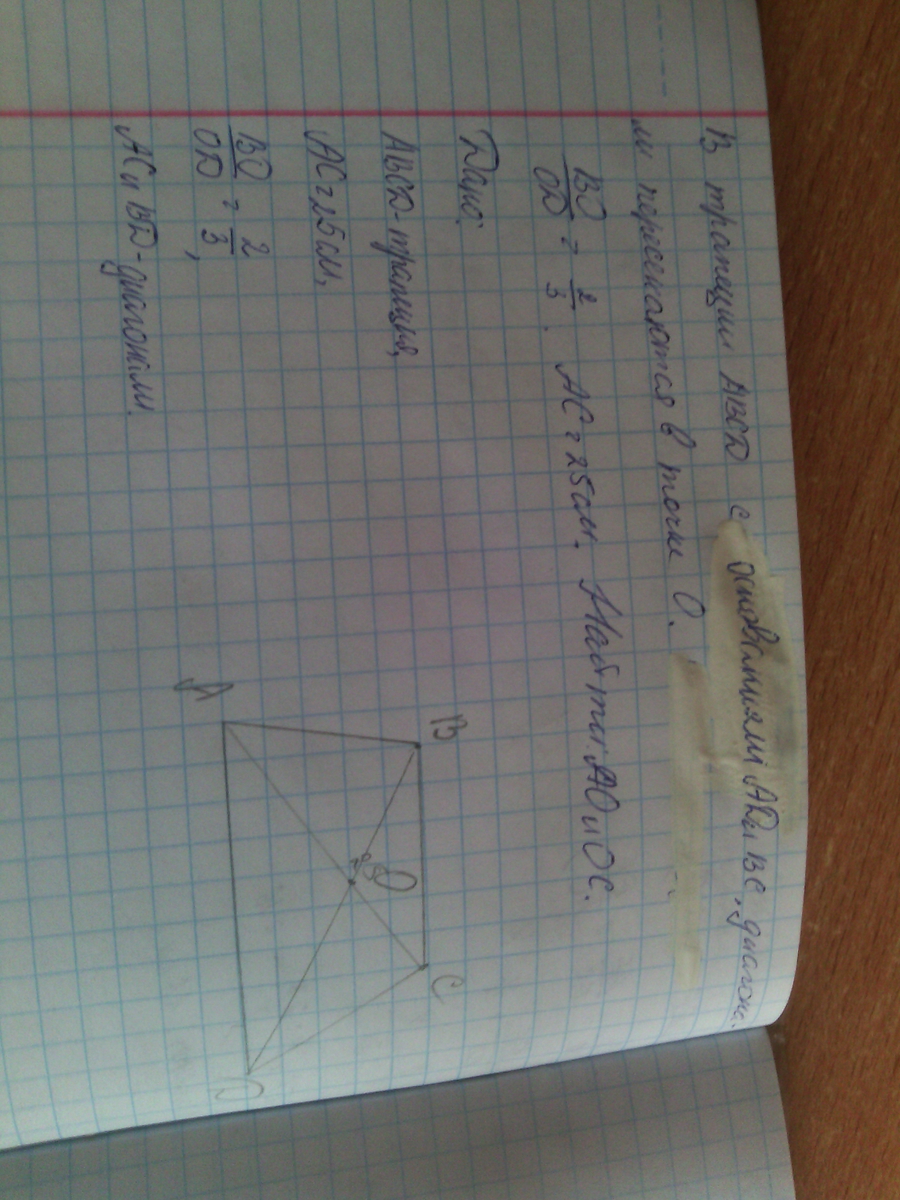 В трапеции ABCD с основаниями AD и BC, диагона-
ли пересекаются в точке O.
BO/OD = 2/3. AC = 25 см. Найти: AO и OC.
Дано:
ABCD - трапиция,
AC = 25 см,
BO/OD = 2/3,
AC и BD - диагонали.
B
C
O
25
A
D